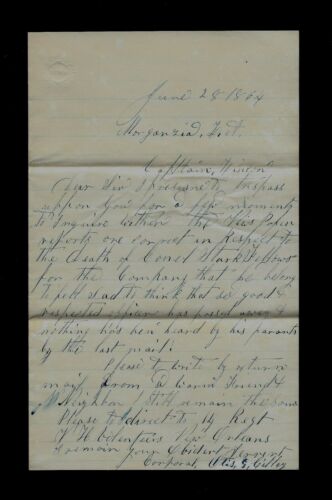 June 28 1864
Morganzia, La.
Captain,
Dear Sir I presume to trespass
uppon you for a few moments
to Inquire wether the News Paper
reports are correct in respect to
the death of Stark Fellows
for the Company that he belong
to felt sad to think that so good &
respected officer has passed away
nothing has been heard by his parants
by the last mail:
Please to write by return
mail from a warm Friend &
Neighbor still remain the same
Please to direct to Regt
N. H. New Orleans
I remain your Obident Servent
Corporal, Otis G.